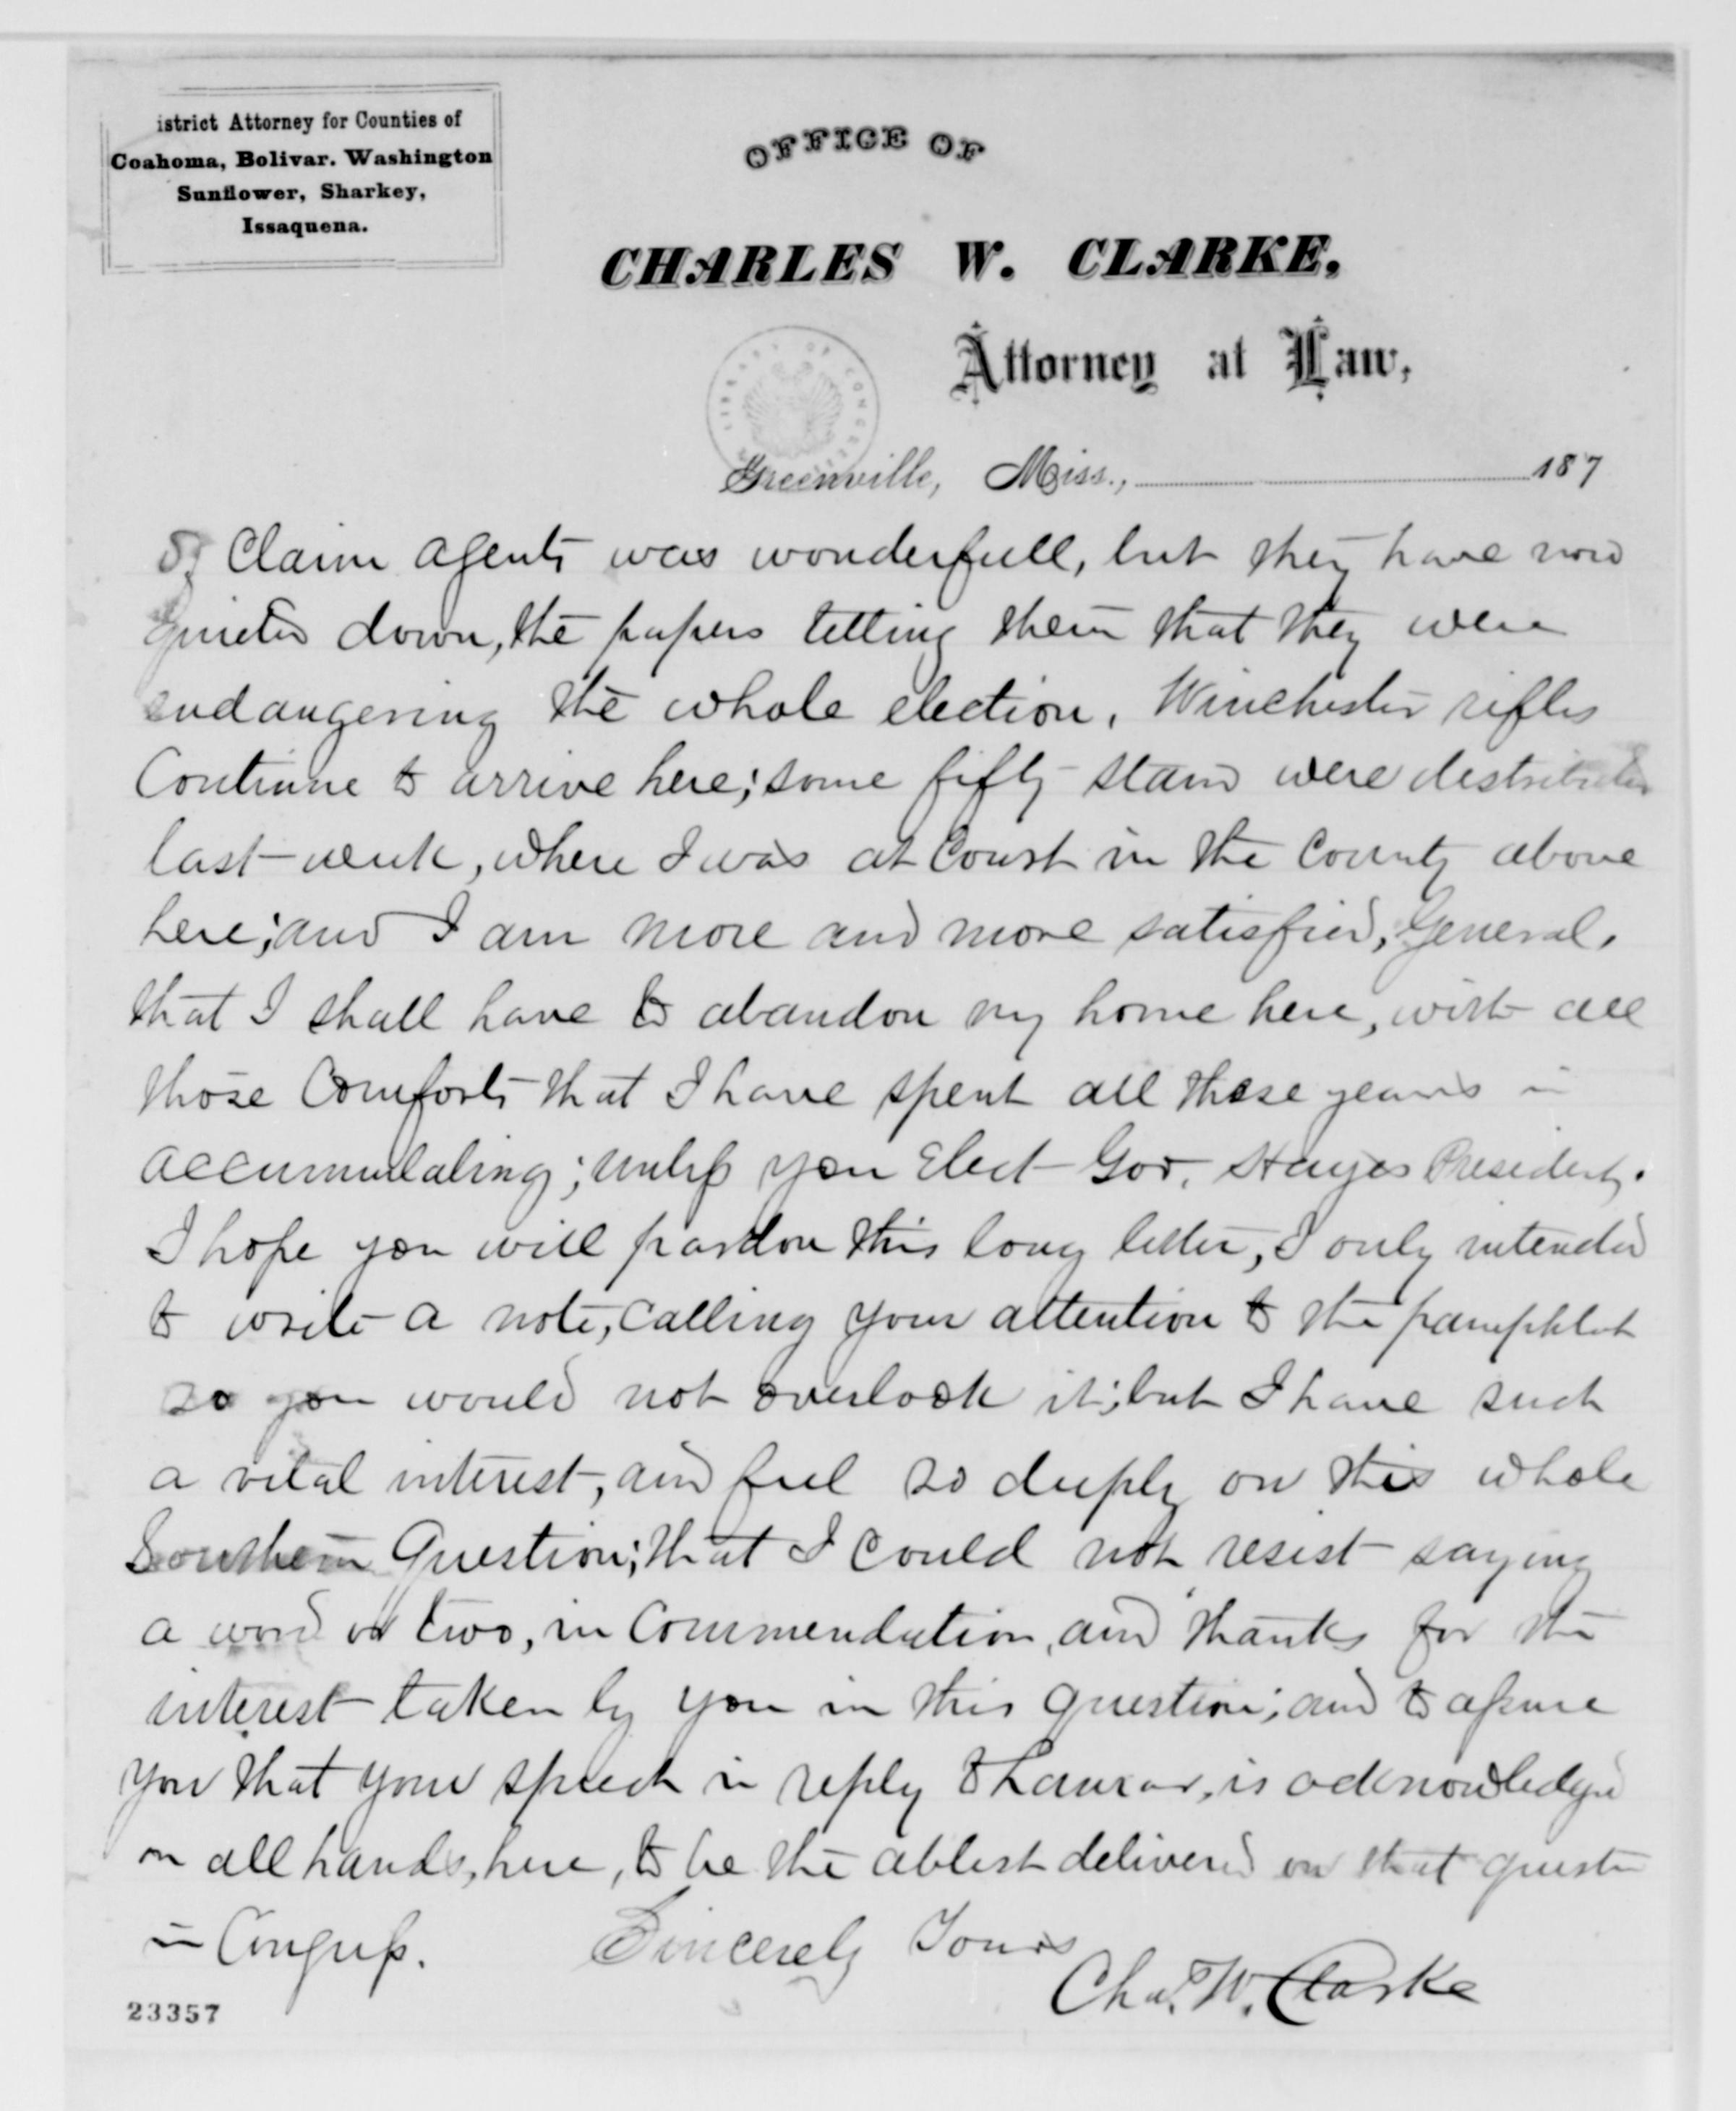 istrict Attorney for Counties of
Coahoma, Bolivar. Washington
Sunflower, Sharkey,
Issaquena.
OFFICE OF
CHARLES W. CLARKE,
Attorney at Law,
LIBRARY OF CONGRESS
Greenville, Miss., 187
of Claim agents was wonderfull, but they have now
quieted down, the papers telling them that they were
endangering the whole election. Winchester rifles
Continue to arrive here; some fifty stand were distributed
last week, where I was at Court in the County above
here; and I am more and more satisfied, General,
that I shall have to abandon my home here, with all
those Comforts that I have spent all these years in
accumulating; unless you Elect Gov. Hayes President.
I hope you will pardon this long letter, I only intended
to write a note, calling your attention to the pamphlet
so you would not overlook it; but I have such
a vital interest, and feel so deeply on this whole
Southern Question; that I could not resist saying
a word or two, in Commendation, and thanks for the
interest taken by you in this question; and to assure
you that your speech in reply to Lamar, is acknowledged
on all hands, here, to be the ablest delivered on that question
in Congress. Sincerely Yours
Chas. W. Clarke
23357